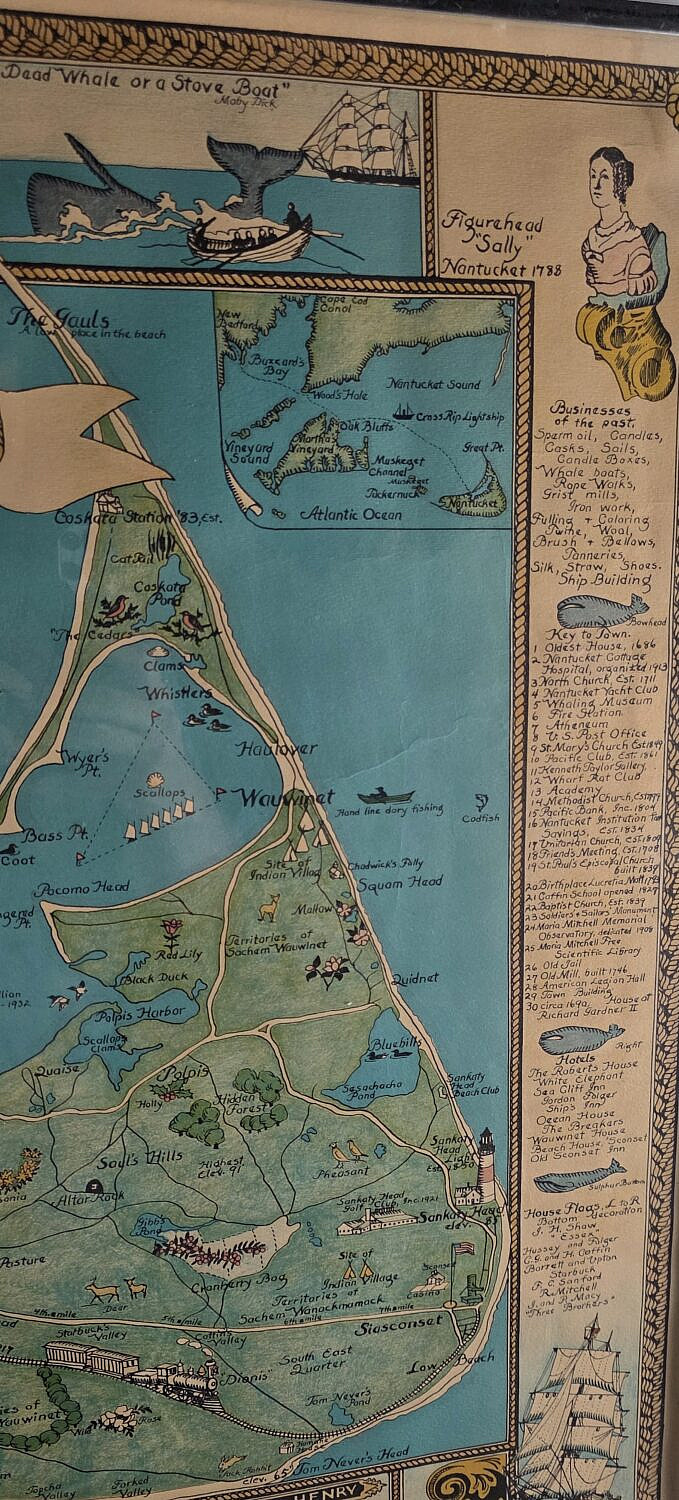 Dead Whale or a Stove Boat"
Moby Dick
Figurehead
"Sally"
Nantucket 1788
The Gauls
A low place in the beach
New
Bedford
Cape Cod
Canal
Buzzard's
Bay
Wood's Hole
Nantucket Sound
Cross Rip Lightship
Oak Bluffs
Vineyard
Sound
Martha's
Vineyard
Great Pt.
Muskeget
Channel
Muskeget
Tuckernuck
Nantucket
Atlantic Ocean
Coskata Station '83, Est.
Cat Tail
Coskata
Pond
"The Cedars"
Clams
Whistlers
Haulover
Wyer's
Pt.
Scallops
Wauwinet
Hand line dory fishing
Codfish
Bass Pt.
Coot
Site of
Indian Village
Chadwick's Folly
Squam Head
Pocomo Head
Mallow
Red Lily
Territories of
Sachem Wauwinet
Black Duck
Quidnet
-1932
Polpis Harbor
Scallops
Clams
Bluebills
Quaise
Polpis
Sesachacha
Pond
Sankaty
Head
Beach Club
Holly
Hidden
Forest
Sankaty
Head
Light
Est. 1850
Saul's Hills
Highest
Elev. 91
Pheasant
Altar Rock
Sankaty Head
Golf Club, Inc. 1921
Sankaty Head
elev. 85
Gibb's
Pond
Pasture
Cranberry Bog
Site of
Indian Village
Sconset
Casino
Deer
Territories of
Sachem Wanackmamack
4th mile
5th mile
6th mile
7th mile
Siasconset
Starbuck's
Valley
Collin's
Valley
"Dionis"
South East
Quarter
Low Beach
Wauwinet
Wild Rose
Tom Never's
Pond
Jack Rabbit
Elev. 65
Tom Never's Head
Toupcha
Valley
Forked
Valley
HENRY
Businesses
of the past.
Sperm oil, Candles,
Casks, Sails,
Candle Boxes,
Whale boats,
Rope Walks,
Grist mills,
Iron work,
Fulling + Coloring
Twine, Wool,
Brush + Bellows,
Tanneries,
Silk, Straw, Shoes.
Ship Building
Bowhead
Key to Town.
1 Oldest House, 1686
2 Nantucket Cottage
Hospital, organized 1913
3 North Church, Est. 1711
4 Nantucket Yacht Club
5 Whaling Museum
6 Fire Station
7 Atheneum
8 U.S. Post Office
9 St. Mary's Church Est. 1897
10 Pacific Club, Est. 1861
11 Kenneth Taylor Gallery
12 Wharf Rat Club
13 Academy
14 Methodist Church, Est. 1799
15 Pacific Bank, Inc. 1804
16 Nantucket Institution for
Savings, Est. 1834
17 Unitarian Church, Est. 1809
18 Friends Meeting, Est. 1708
19 St. Paul's Episcopal Church
built 1839
20 Birthplace Lucretia Mott, 1793
21 Coffin School opened 1827
22 Baptist Church, Est. 1839
23 Soldiers + Sailors' Monument
24 Maria Mitchell Memorial
Observatory, dedicated 1908
25 Maria Mitchell Free
Scientific Library
26 Old Jail
27 Old Mill, built 1746
28 American Legion Hall
29 Town Building
30 circa 1690 House of
Richard Gardner II
Right
Hotels
The Roberts House
White Elephant
Sea Cliff Inn
Gordon Folger
Ship's Inn
Ocean House
The Breakers
Wauwinet House
Beach House 'Sconset
Old Sconset Inn
Sulphur Bottom
House Flags, L to R
Bottom Decoration
J. H. Shaw
Essex
Hussey and Folger
C.G. and H. Coffin
Barrett and Upton
Starbuck
F. C. Sanford
R. Mitchell
J. and P. Macy
"Three Brothers"